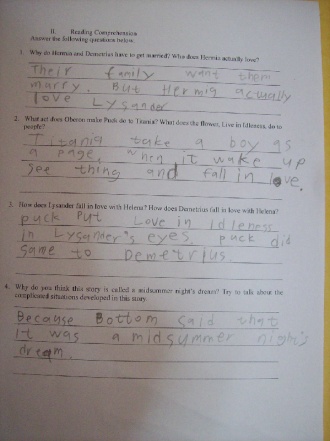 II. Reading Comprehension
Answer the following questions below.
1. Why do Hermia and Demetrius have to get married? Who does Hermia actually love?
Their family want them
marry. But Hermia actually
love Lysander
2. What act does Oberon make Puck do to Titania? What does the flower, Love in Idleness, do to
people?
Titania take a boy as
a page. When it wake up
see thing and fall in love.
3. How does Lysander fall in love with Helena? How does Demetrius fall in love with Helena?
puck put Love in idleness
in Lysander's eyes. puck did
same to Demetrius.
4. Why do you think this story is called a midsummer night's dream? Try to talk about the
complicated situations developed in this story
Because Bottom said that
it was a midsummer night's
dream.